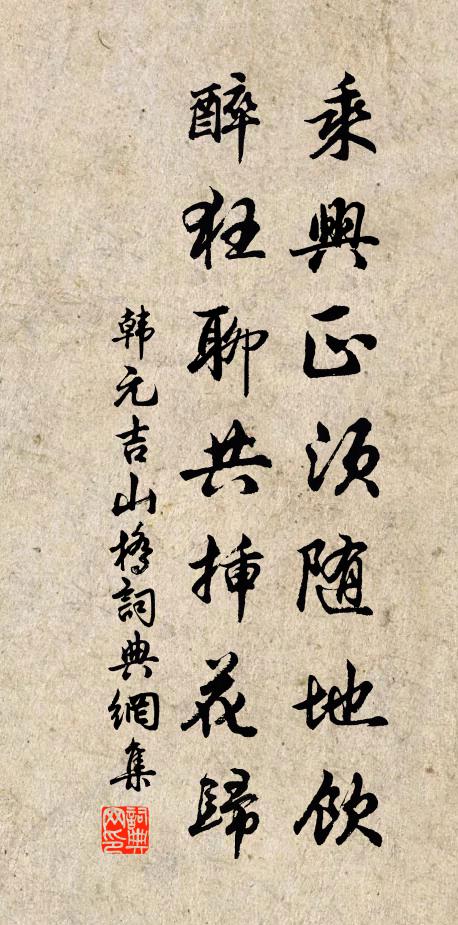 乘興正須随地飲
醉狂聊共插花歸
韩元吉山橋詞典網集
詞典网印